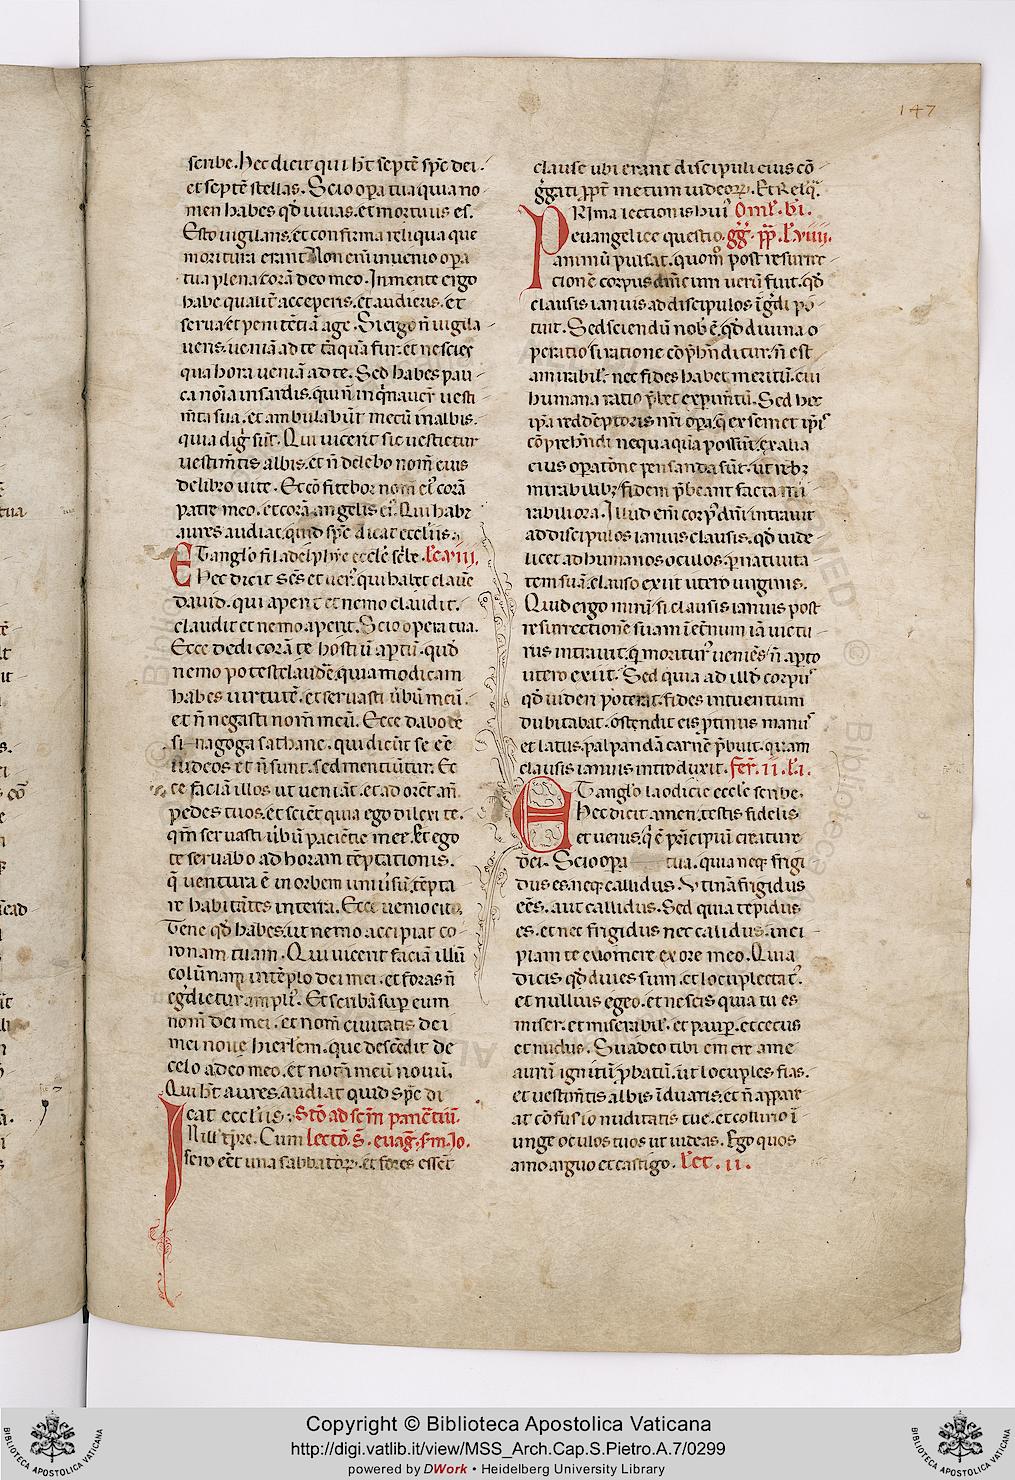 147
scribe. hec dicit qui ht septē spc̄ dei.
et septē stellas. Scio opa tua quia no
men habes qd̄ uiuas. et mortuus es.
Esto uigilans. et confirma reliqua que
moritura erant Non enī inuenio opa
tua plena corā deo meo. In mente ergo
habe qualit̄ acceperis. et audieris. et
serua et penitētiā age. Si ergo n̄ uigila
ueris. ueniā ad te tāquā fur. et nescies
qua hora ueniā ad te. Sed habes pau
ca noīa in sardis. qui n̄ inq̄nauer̄ uesti
mta sua. et ambulabūt mecū in albis.
quia diḡ sūt. Qui uicerit sic uestietur
uestimtis albis. et n̄ delebo nom̄ eius
de libro uite. Et cōfitebor nom̄ ei' corā
patre meo. et corā angelis ei'. Qui habt
aures audiat. quid spc̄ dicat eccl'iis.
ET anglo filadelphye eccle sc'be. lc̄. viii.
Hec dicit scs̄ et uer'. qui habet clauē
dauid. qui aperit et nemo claudit.
claudit et nemo aperit. Scio opera tua.
Ecce dedi corā te hostiū aptū. quod
nemo potest claudē. quia modicam
habes uirtutē. et seruasti ubū meū.
et n̄ negasti nom̄ meū. Ecce dabo de
si nagoga sathane. qui dicūt se eē
iudeos et n̄ sunt. sed mentiūtur. Ec
ce faciā illos ut ueniāt. et adorēt an̄
pedes tuos. et sciēt quia ego dilexi te.
qm̄ seruasti ubū pacientie mee. Et ego
te seruabo ad horam tēptationis.
q̄ uentura ē in orbem uniusū. tēpta
re habitātes in terra. Ecce uenio cito.
Tene qd̄ habes. ut nemo accipiat co
ronam tuam. Qui uicerit faciā illū
colūnam in tēplo dei mei. et foras n̄
eḡdietur ampli'. Et scribā sup eum
nom̄ dei mei. et nom̄ ciuitatis dei
mei noue hierlem. que descēdit de
celo a deo meo. et nom̄ meū nouū.
Qui ht aures. audiat quid spc̄ di
cat eccl'iis. Stō ad scm̄ pancr̄tiū.
Cum lectō. S. euāg. s'm. Io.
sero eēt una sabbator. et fores essēt
clause ubi erant discipuli eius cō
ḡgati ppt metum iudeor. Et Relq̄.
PRima lectionis hui' Oml'. bi.
euangelice questio. gḡ. pp̄. lc̄. viiii.
animū pulsat. quom̄ post resurrec
tionē corpus dn̄icum uerū fuit. qd̄
clausis ianuis ad discipulos īḡdi po
tuit. Sed sciendū nob' ē. qd̄ diuina o
peratio si ratione cōp̄hn̄ditur. n̄ est
amirabil'. nec fides habet meritū. cui
humana ratio p̄bet expim̄tū. Sed hec
ipa redēptoris nr̄i opa. q̄ ex semet ip̄is
cōprehn̄di nequaquā possūt. ex alia
eius opatōne pensanda sūt. ut reb'
mirabilib' fidem p̄beant facta mi
rabiliora. Illud enī corp' dn̄i intrauit
ad discipulos ianuis clausis. qd̄ uide
licet ad humanos oculos. p natiuita
tem suā. clauso exiit utero uirginis.
Quid ergo mirū. si clausis ianuis post
resurrectionē suam ī etnum iā uictu
rus intrauit. q̄ moritur' ueniēs. n̄ apto
utero exiit. Sed quia ad illd̄ corpus
qd̄ uideri poterat. fides intuentium
dubitabat. ostendit eis ptinus manus
et latus. palpandā carnē p̄buit. quam
clausis ianuis introduxit. fer̄. ii. l'. i.
ET anglo laodicie eccle scribe.
Hec dicit amen. testis fidelis
et uerus. q' ē p̄ncipiū creature
dei. Scio opa tua. quia neq. frigi
dus es. neq. callidus. Vtinā frigidus
eēs. aut callidus. Sed quia tepidus
es. et nec frigidus nec calidus. inci
piam te euomere ex ore meo. Quia
dicis qd̄ diues sum. et locuplectat'.
et nullius egeo. et nescis quia tu es
miser. et miserabil'. et paup. et cecus
et nudus. Suadeo tibi emere a me
aurū ignitū pbatū. ut locuples fias.
et uestimtis albis īduaris. et n̄ appare
at cōfusio nuditatis tue. et collirio ī
unge oculos tuos ut uideas. Ego quos
amo arguo et castigo. lc̄t. ii.
Copyright © Biblioteca Apostolica Vaticana
http://digi.vatlib.it/view/MSS_Arch.Cap.S.Pietro.A.7/0299
powered by DWork • Heidelberg University Library